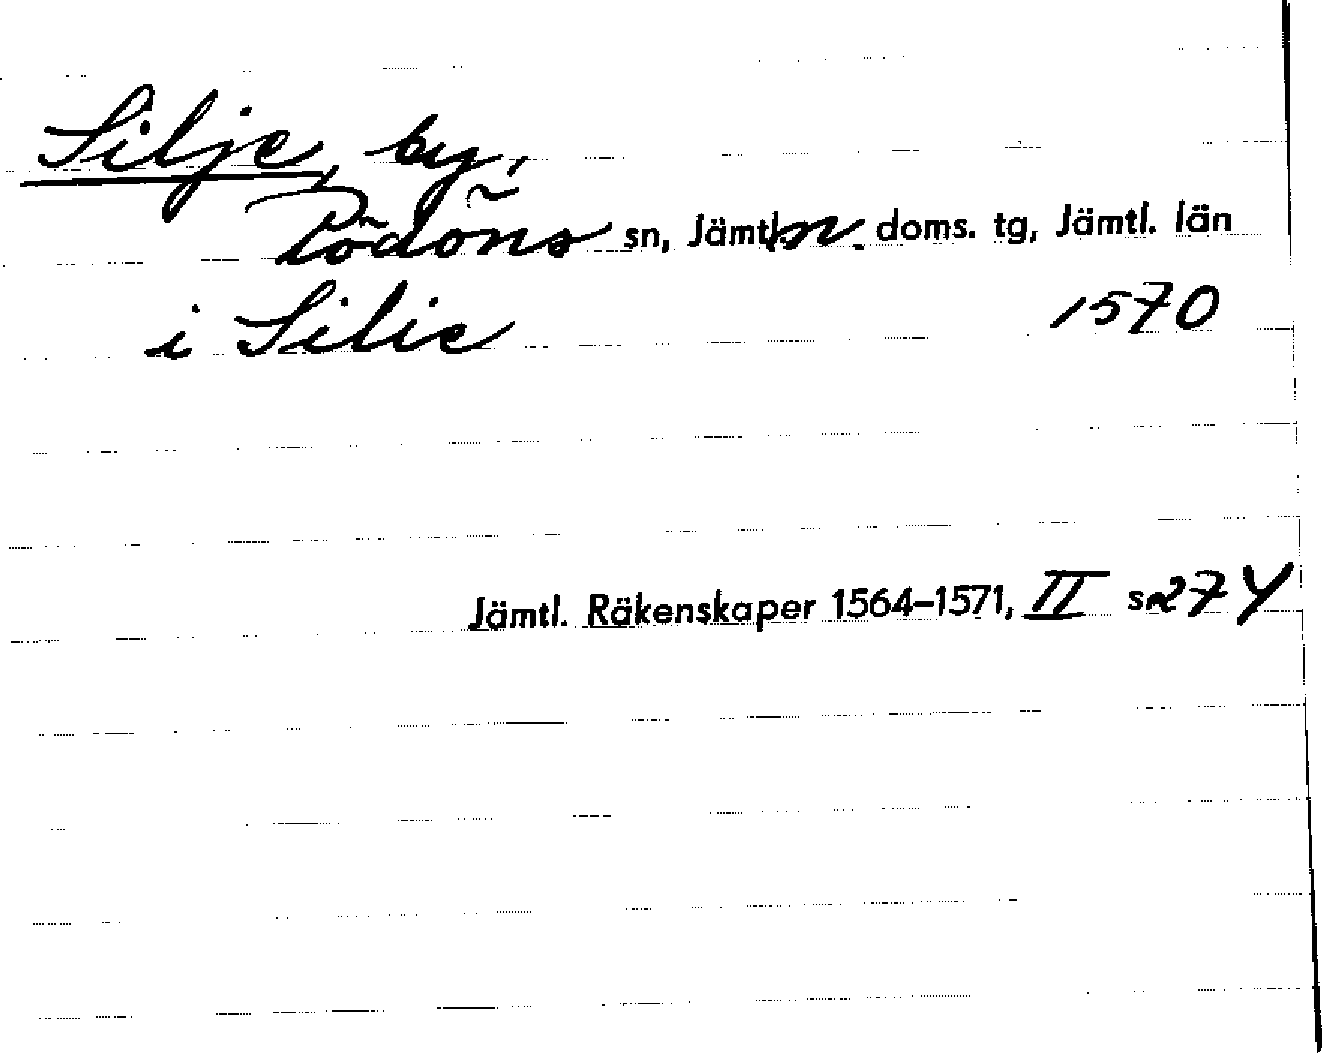 Silje, by,
Rödöns sn, Jämtl. n. doms. tg, Jämtl. län
i Silie 1570
Jämtl. Räkenskaper 1564–1571, II s. 274